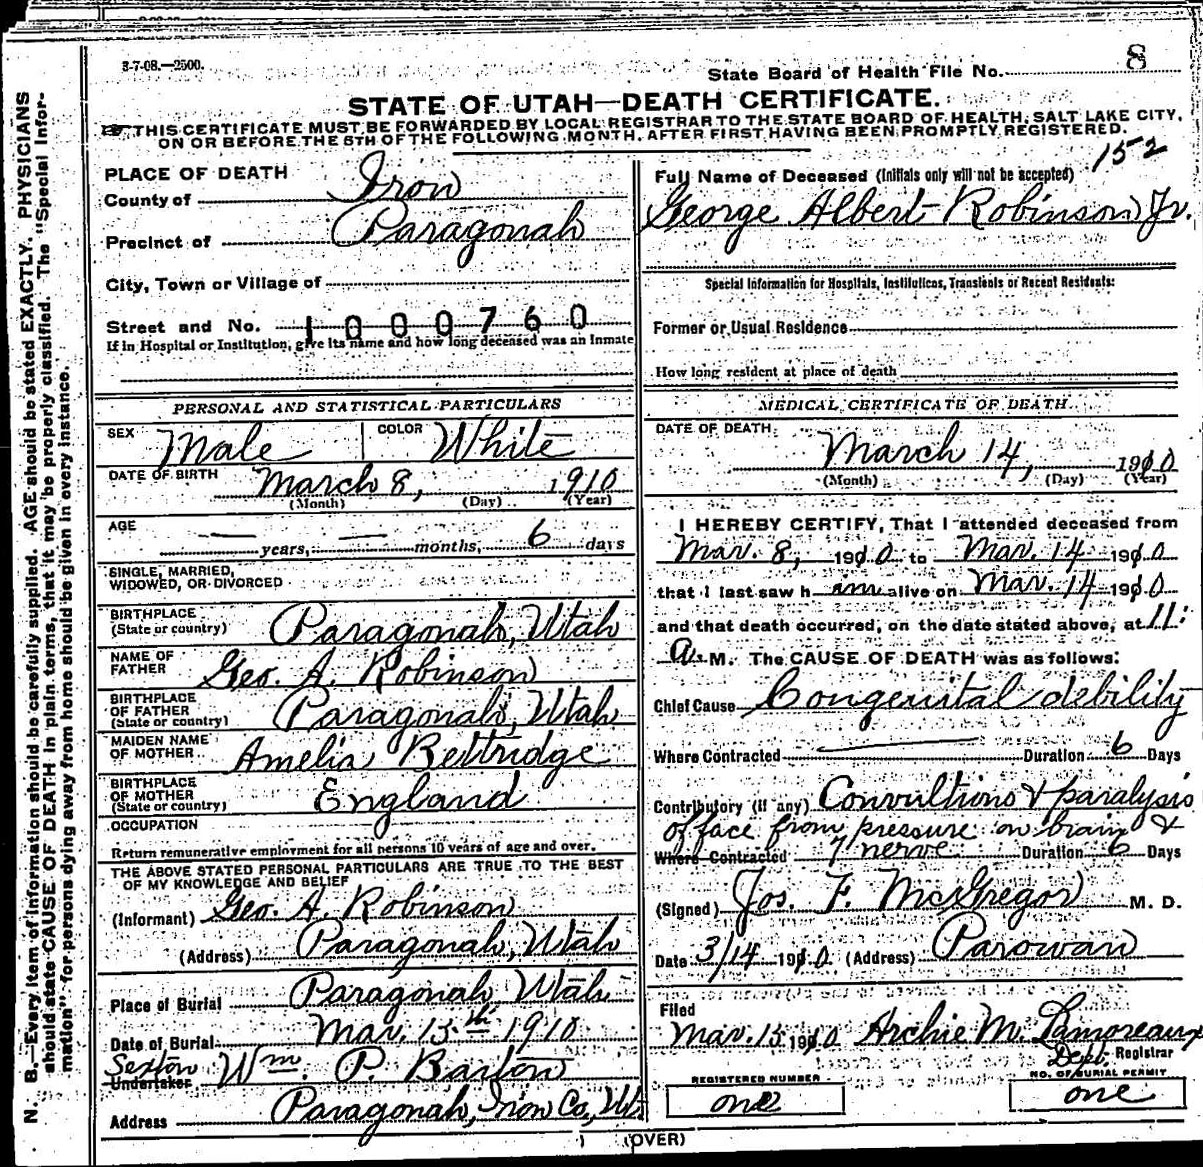 3-7-08.—2500.
State Board of Health File No. 8
STATE OF UTAH—DEATH CERTIFICATE.
THIS CERTIFICATE MUST BE FORWARDED BY LOCAL REGISTRAR TO THE STATE BOARD OF HEALTH, SALT LAKE CITY,
ON OR BEFORE THE 5TH OF THE FOLLOWING MONTH, AFTER FIRST HAVING BEEN PROMPTLY REGISTERED.
152
PLACE OF DEATH
County of Iron
Precinct of Paragonah
City, Town or Village of
Street and No. 1000760
If in Hospital or Institution, give its name and how long deceased was an Inmate
PERSONAL AND STATISTICAL PARTICULARS
SEX Male COLOR White
DATE OF BIRTH March 8, 1910
(Month) (Day) (Year)
AGE — years, — months, 6 days
SINGLE, MARRIED,
WIDOWED, OR DIVORCED
BIRTHPLACE
(State or country) Paragonah, Utah
NAME OF
FATHER Geo. A. Robinson
BIRTHPLACE
OF FATHER
(State or country) Paragonah, Utah
MAIDEN NAME
OF MOTHER Amelia Bettridge
BIRTHPLACE
OF MOTHER
(State or country) England
OCCUPATION
Return remunerative employment for all persons 10 years of age and over.
THE ABOVE STATED PERSONAL PARTICULARS ARE TRUE TO THE BEST
OF MY KNOWLEDGE AND BELIEF
(Informant) Geo. A. Robinson
(Address) Paragonah, Utah
Place of Burial Paragonah Utah
Date of Burial Mar. 15th 1910
Sexton Wm. P. Barton
Undertaker
Address Paragonah, Iron Co, Ut.
Full Name of Deceased (Initials only will not be accepted)
George Albert Robinson Jr.
Special Information for Hospitals, Institutions, Transients or Recent Residents:
Former or Usual Residence
How long resident at place of death
MEDICAL CERTIFICATE OF DEATH
DATE OF DEATH
March 14, 1910
(Month) (Day) (Year)
I HEREBY CERTIFY, That I attended deceased from
Mar. 8, 1910 to Mar. 14 1910
that I last saw him alive on Mar. 14 1910
and that death occurred, on the date stated above, at 11:
A. M. The CAUSE OF DEATH was as follows:
Chief Cause Congenital debility
Where Contracted — Duration 6 Days
Contributory (if any) Convultions & paralysis
of face from pressure on brain &
Where Contracted 7' nerve Duration 6 Days
(Signed) Jos. F. McGregor M. D.
Date 3/14 1910 (Address) Parowan
Filed
Mar. 15 1910 Archie M. Lamoreaux
Dept. Registrar
REGISTERED NUMBER
one
NO. OF BURIAL PERMIT
one
(OVER)
N. B.—Every item of information should be carefully supplied. AGE should be stated EXACTLY. PHYSICIANS
should state CAUSE OF DEATH in plain terms, that it may be properly classified. The "Special Infor-
mation" for persons dying away from home should be given in every instance.